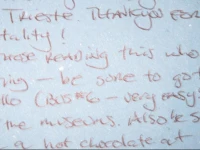 Trieste. THANKYOU FOR
tality!
those reading this who
ing - be sure to go t
(BUS#6 - very easy
the museums. Also be s
a hot chocolate at